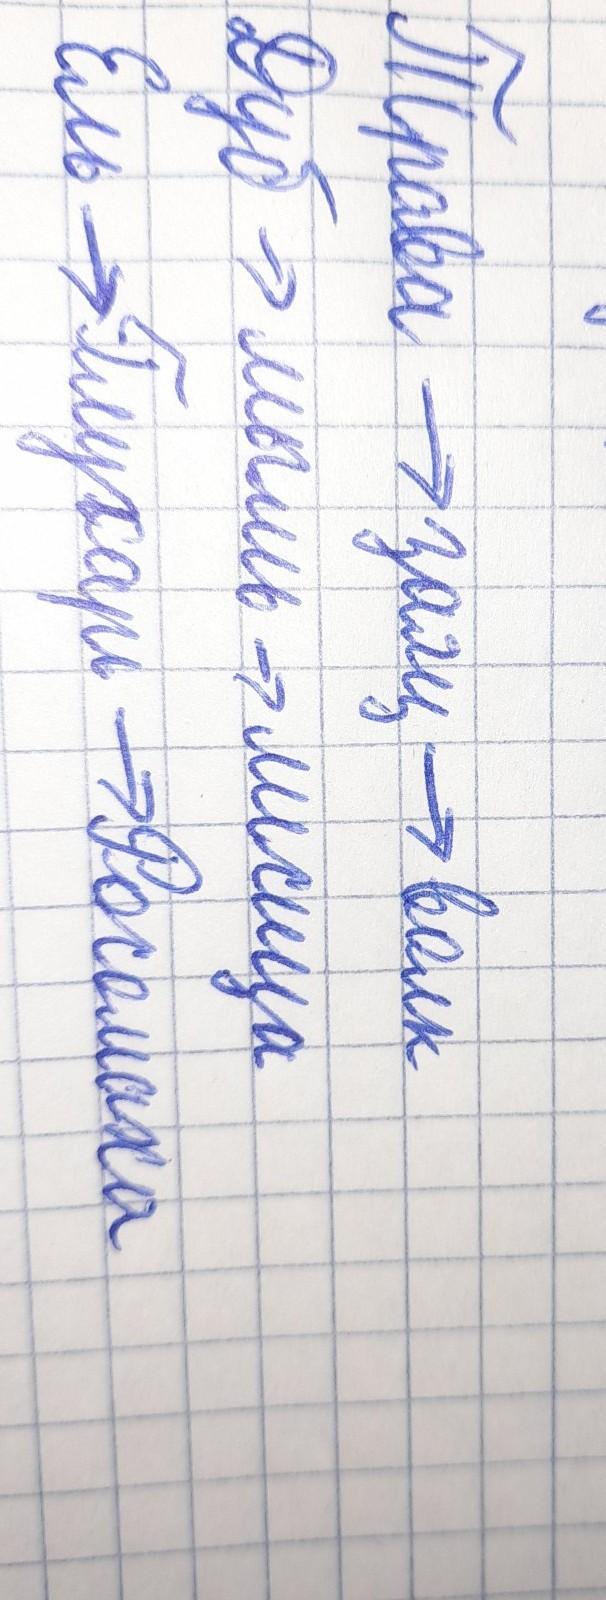 Трава → заяц → волк
Дуб → мышь → лисица
Ель → Глухарь → Росомаха